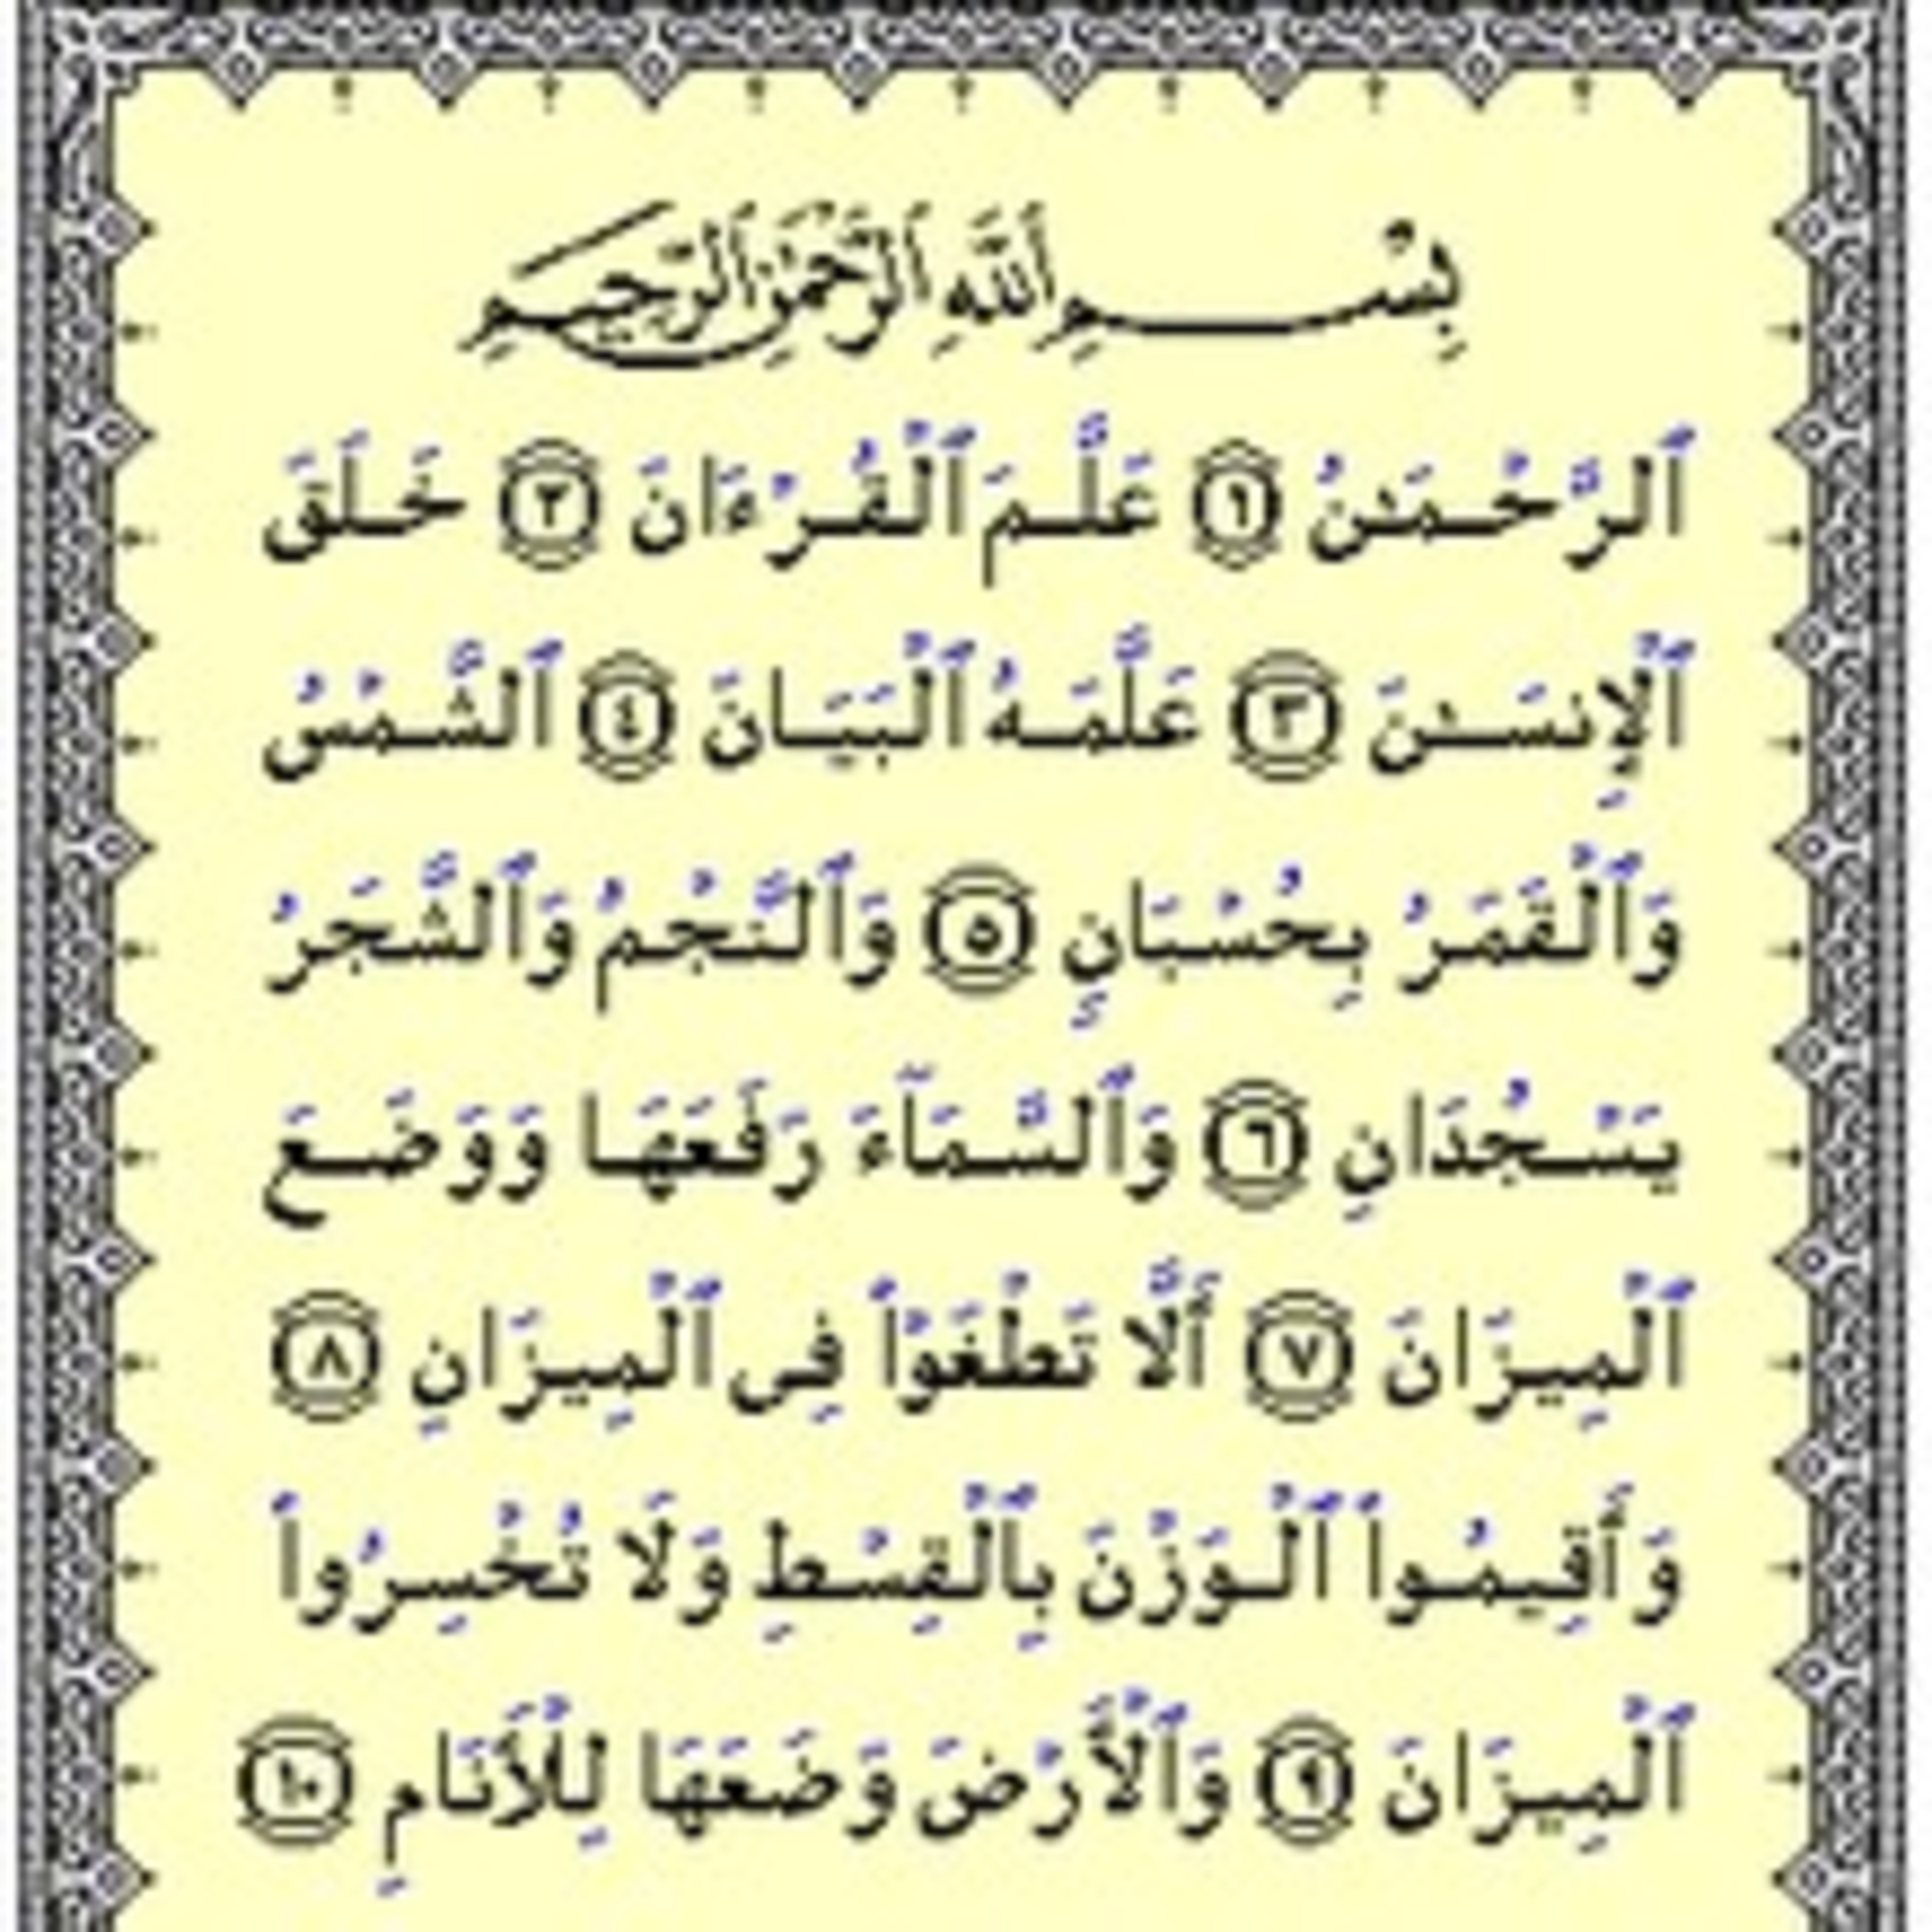 بِسْمِ ٱللَّهِ ٱلرَّحْمَـٰنِ ٱلرَّحِيمِ
ٱلرَّحْمَـٰنُ ١ عَلَّمَ ٱلْقُرْءَانَ ٢ خَلَقَ
ٱلْإِنسَـٰنَ ٣ عَلَّمَهُ ٱلْبَيَانَ ٤ ٱلشَّمْسُ
وَٱلْقَمَرُ بِحُسْبَانٍ ٥ وَٱلنَّجْمُ وَٱلشَّجَرُ
يَسْجُدَانِ ٦ وَٱلسَّمَآءَ رَفَعَهَا وَوَضَعَ
ٱلْمِيزَانَ ٧ أَلَّا تَطْغَوْا۟ فِى ٱلْمِيزَانِ ٨
وَأَقِيمُوا۟ ٱلْوَزْنَ بِٱلْقِسْطِ وَلَا تُخْسِرُوا۟
ٱلْمِيزَانَ ٩ وَٱلْأَرْضَ وَضَعَهَا لِلْأَنَامِ ١٠